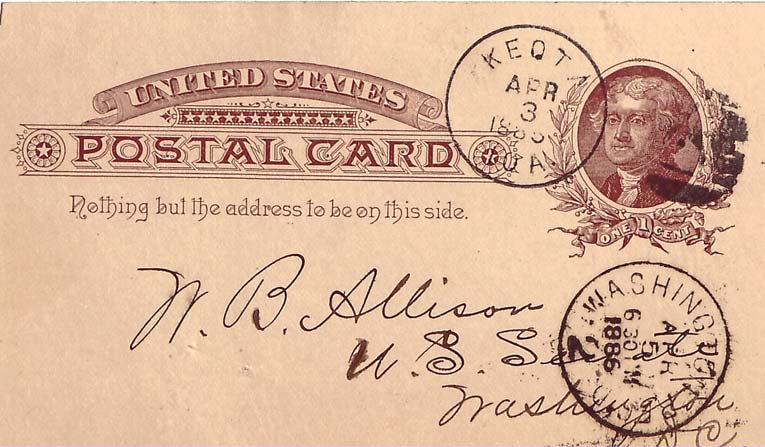 UNITED STATES
POSTAL CARD
Nothing but the address to be on this side.
KEOTA
APR
3
IA.
ONE 1 CENT
W. B. Allison
U. S. Senate
Washington
D C
WASHINGTON
APR
5
630
1886
2